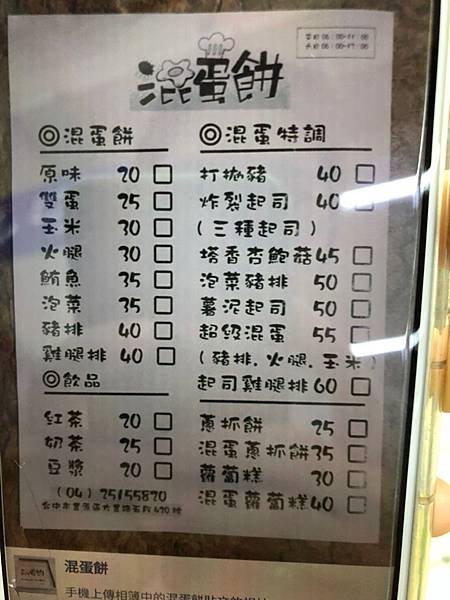 平日06:00-11:00
混蛋餅
◎混蛋餅
原味 20
雙蛋 25
玉米 30
火腿 30
鮪魚 35
泡菜 35
豬排 40
雞腿排 40
◎飲品
紅茶 20
奶茶 25
豆漿 20
(04)25155870
◎混蛋特調
打拋豬 40
炸裂起司 40
(三種起司)
塔香杏鮑菇45
泡菜豬排 50
薯泥起司 50
超級混蛋 55
(豬排.火腿.玉米)
起司雞腿排60
蔥抓餅 25
混蛋蔥抓餅35
蘿蔔糕 30
混蛋蘿蔔糕40
混蛋餅